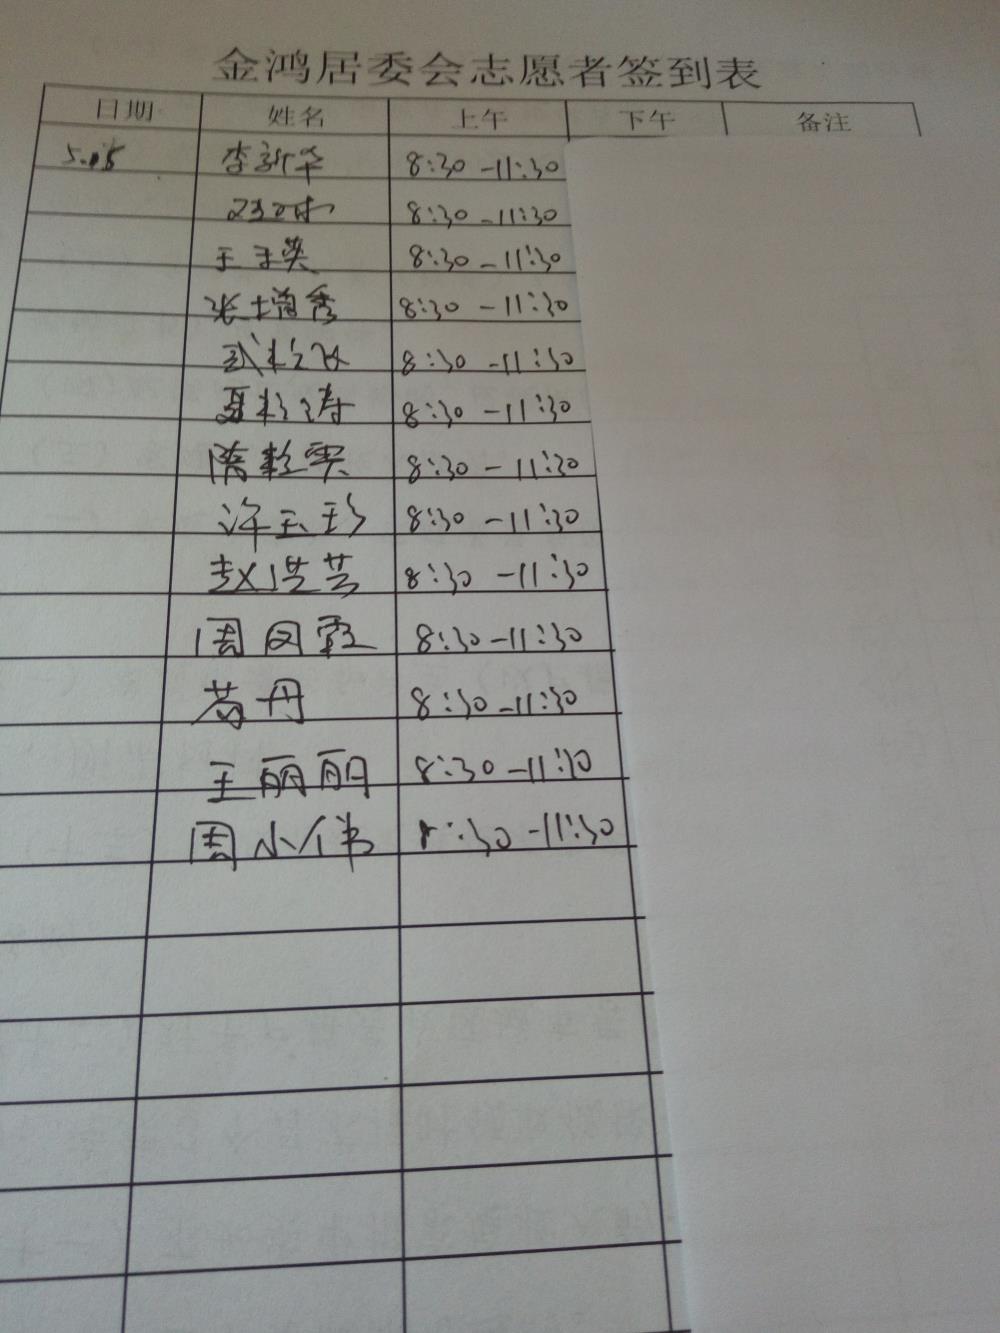 金鸿居委会志愿者签到表
日期 姓名 上午 下午 备注
李新华 8:30-11:30
8:30-11:30
王玉英 8:30-11:30
张增秀 8:30-11:30
8:30-11:30
夏 涛 8:30-11:30
陈 8:30-11:30
许玉珍 8:30-11:30
赵洪芸 8:30-11:30
周凤霞 8:30-11:30
丹 8:30-11:30
王丽丽 8:30-11:30
周小伟 8:30-11:30